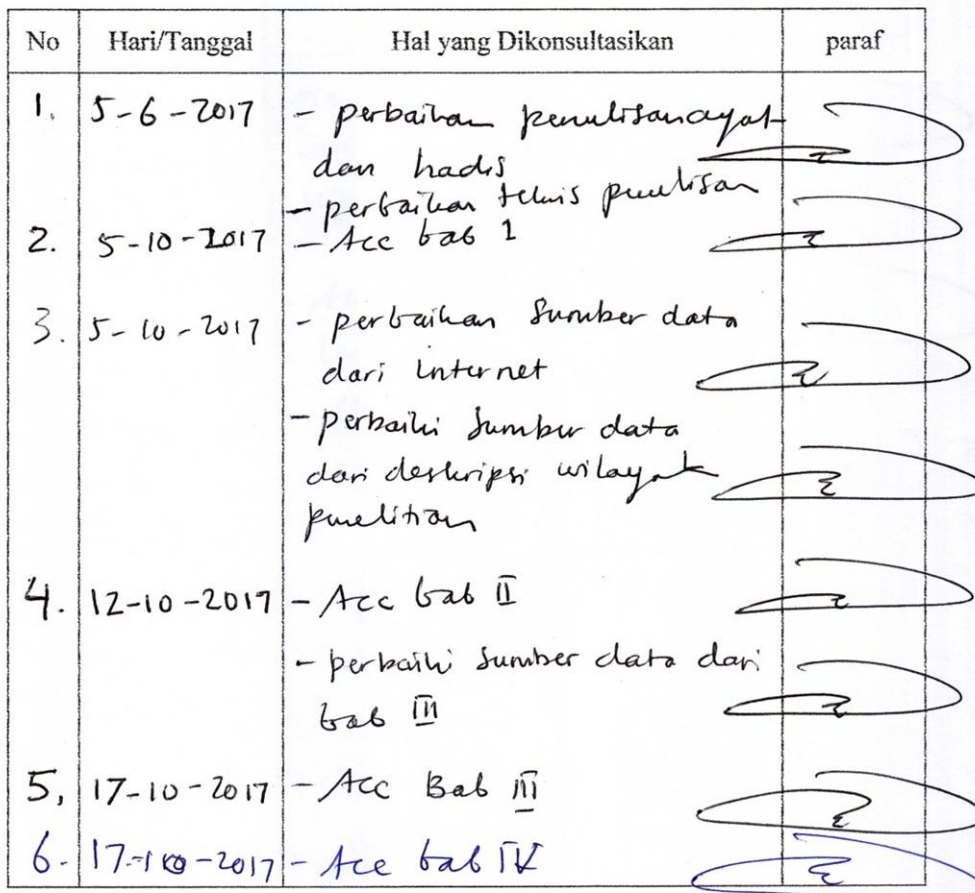 No Hari/Tanggal Hal yang Dikonsultasikan paraf
1. 5-6-2017 - perbaikan penulisan ayat
dan hadis
- perbaikan teknis penulisan
2. 5-10-2017 - Acc bab I
3. 5-10-2017 - perbaikan Sumber data
dari internet
- perbaiki Sumber data
dari deskripsi wilayah
penelitian
4. 12-10-2017 - Acc bab II
- perbaiki Sumber data dari
bab III
5, 17-10-2017 - Acc Bab III
6. 17-10-2017 - Acc bab IV